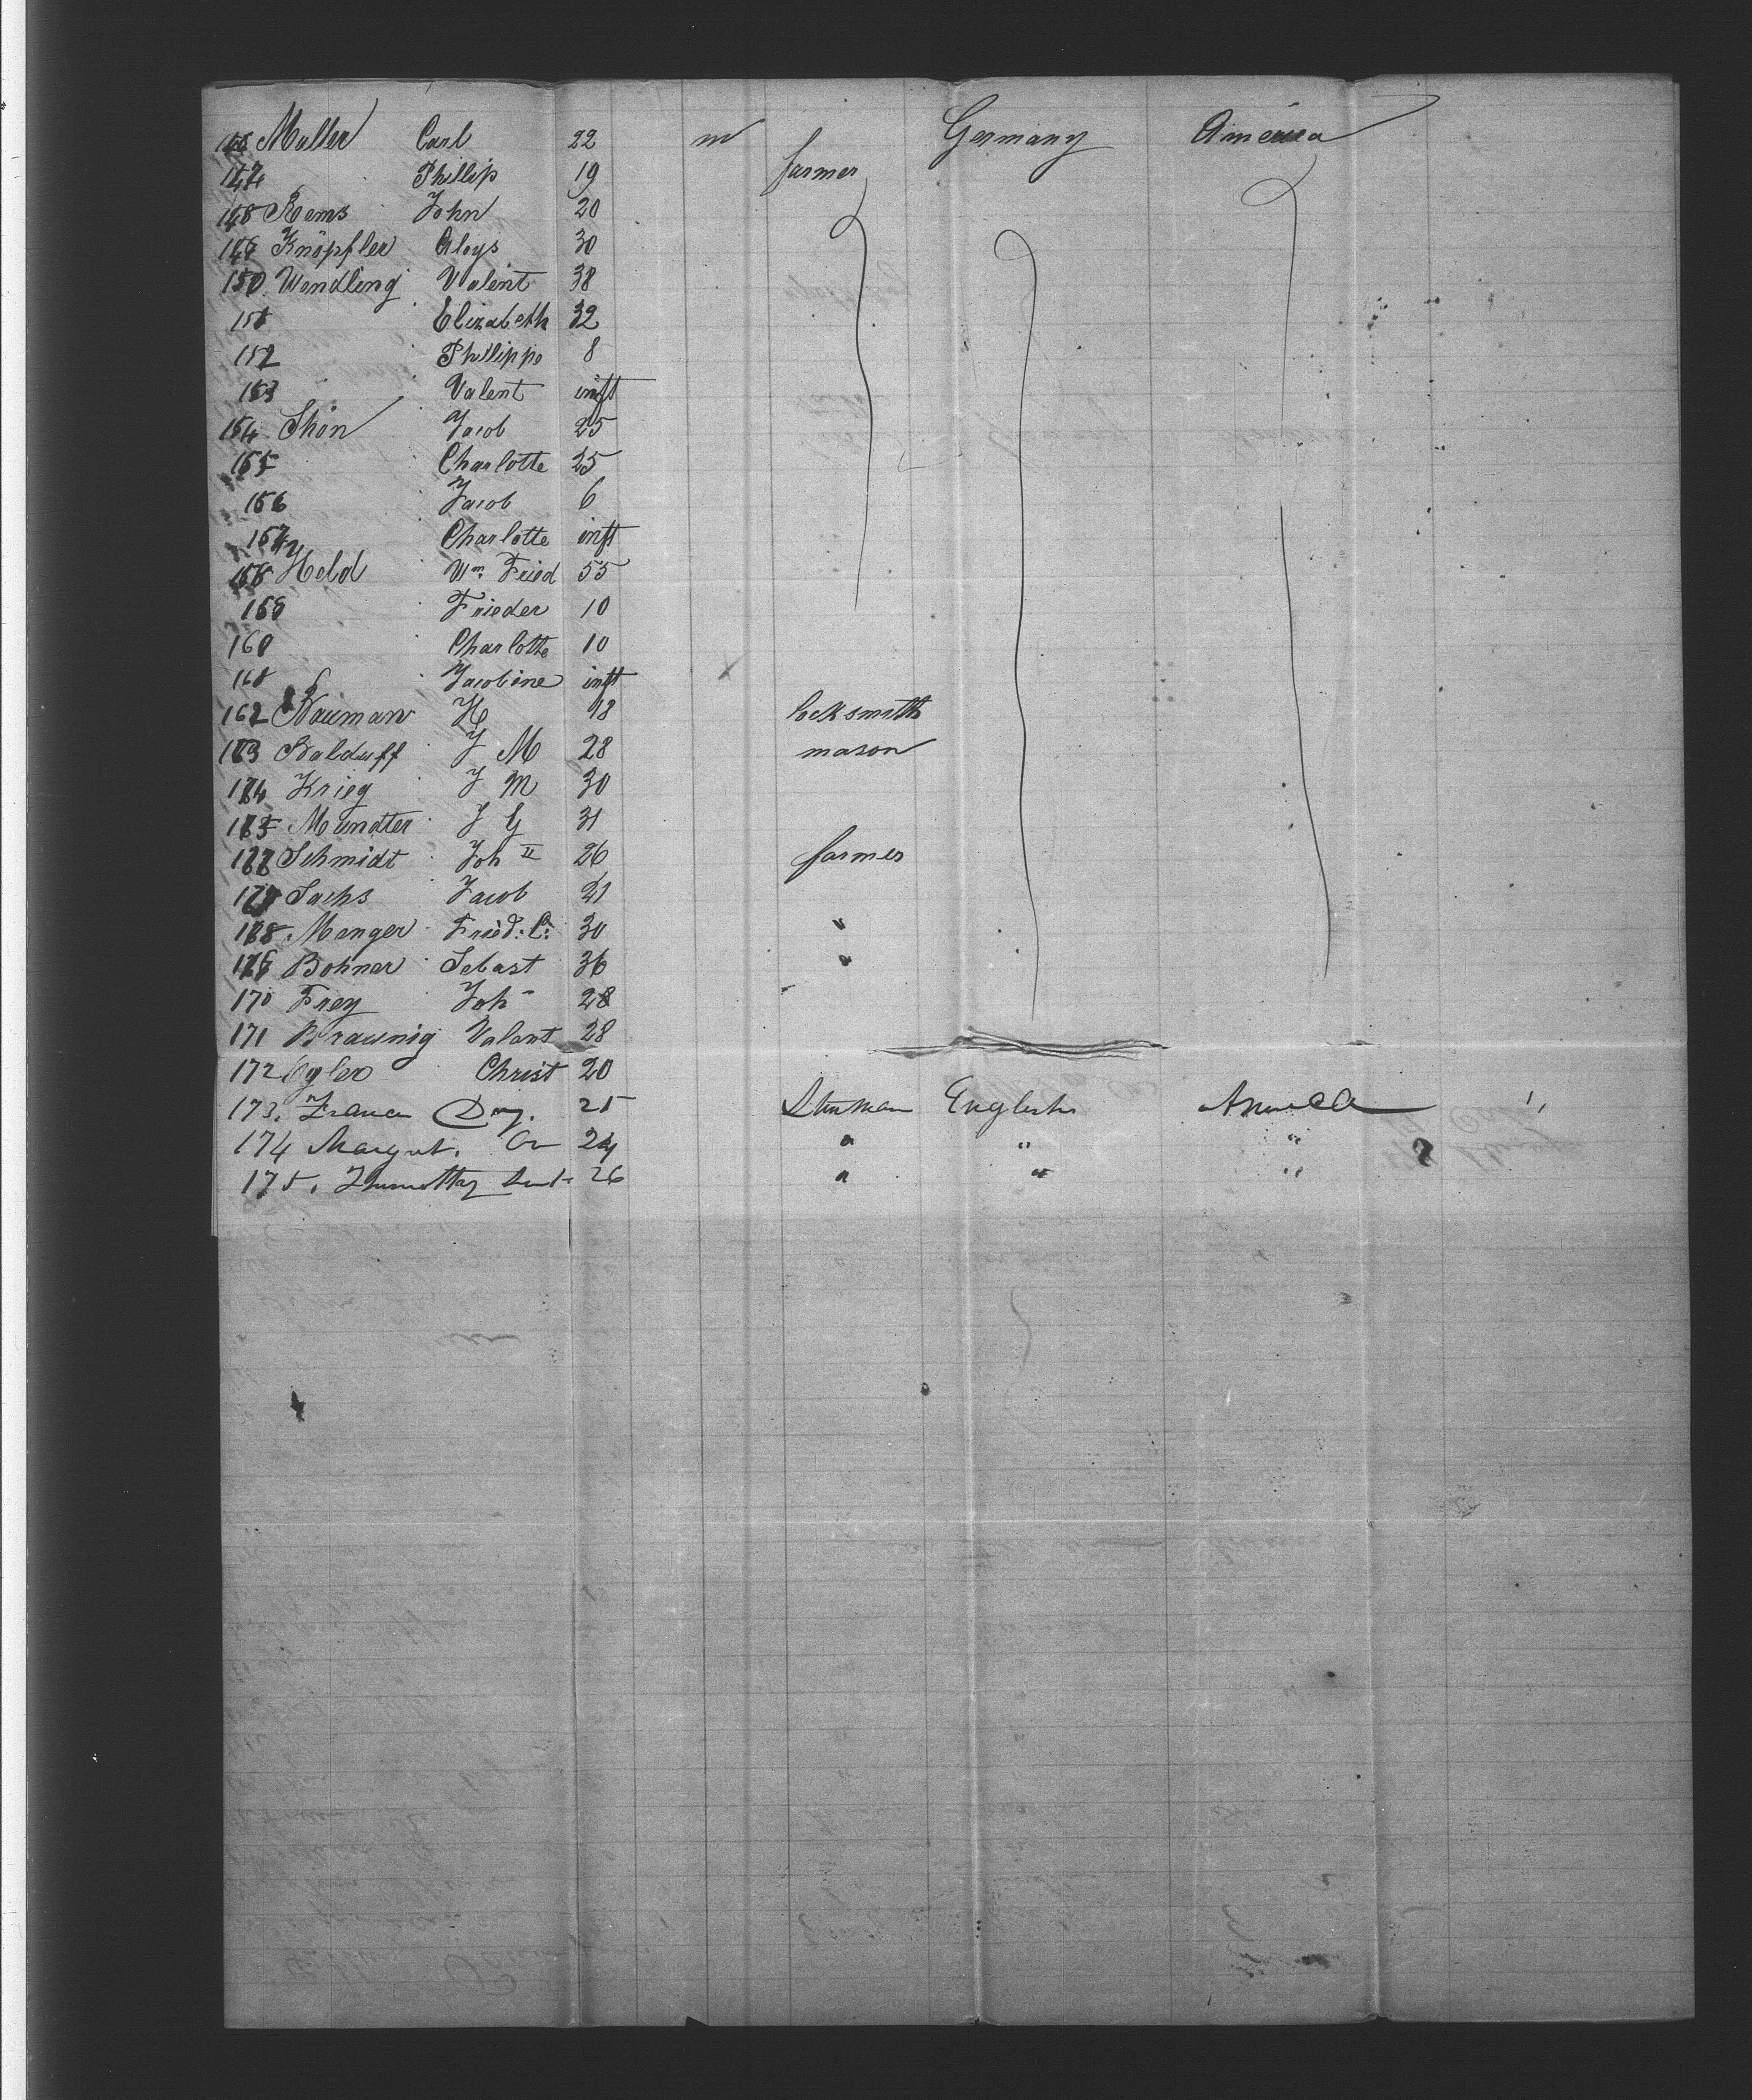 146 Muller Carl 22 m farmer Germany America
147 Phillip 19
148 Rems John 20
149 Knöpfler Aloys 30
150 Wendling Valent 38
151 Elizabeth 32
152 Phillippe 8
153 Valent inft
154 Shön Jacob 25
155 Charlotte 25
156 Jacob 6
157 Charlotte inft
158 Held Wm. Fried 55
159 Frieder 10
160 Charlotte 10
161 Jacobine inft
162 Nauman H 18 locksmith
163 Balduff J M 28 mason
164 Krieg J M 30
165 Mundter J G 31
166 Schmidt Joh II 26 farmer
167 Sachs Jacob 21
168 Menger Fried: C: 30 "
169 Bohner Sebast 36 "
170 Frey Joh 28
171 Braunig Valent 28
172 Egler Christ 20
173. 25 English America "
174 Margret. 24 " " "
175. 26 " " "